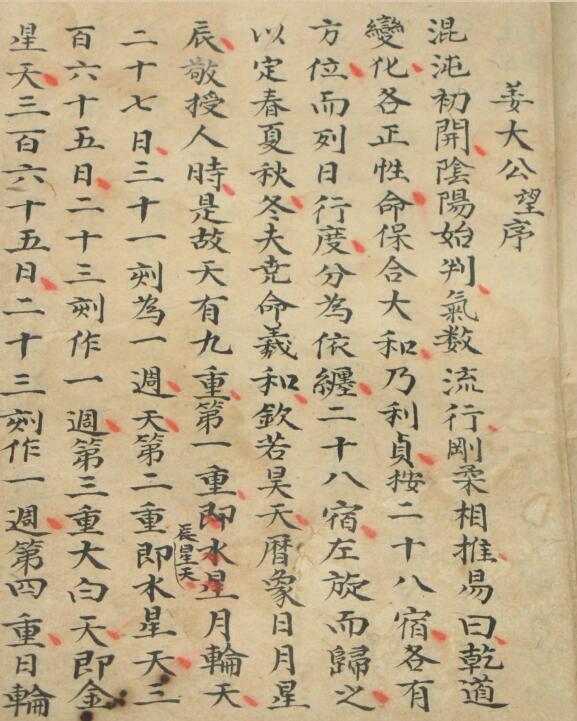 姜大公望序
混沌初開陰陽始判氣数流行剛柔相推易曰乾道
變化各正性命保合大和乃利貞按二十八宿各有
方位而列日行度分為依纒二十八宿左旋而歸之
以定春夏秋冬夫尭命羲和欽若昊天暦象日月星
辰敬授人時是故天有九重第一重即水星月輪天
辰星天
二十七日三十一刻為一週天第二重即水星天三
百六十五日二十三刻作一週第三重大白天即金
星天三百六十五日二十三刻作一週第四重日輪